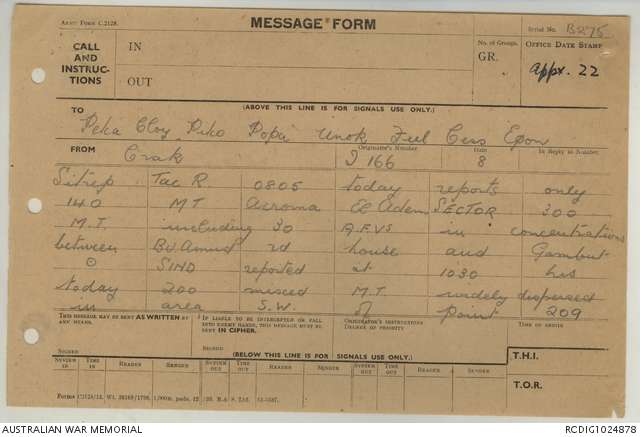 ARMY FORM C.2128.
MESSAGE FORM
SERIAL NO. B275
CALL AND INSTRUC-TIONS
IN
OUT
No. of Groups.
GR.
OFFICE DATE STAMP
appx. 22
TO
(ABOVE THIS LINE IS FOR SIGNALS USE ONLY.)
Peka Cloy Piko Popa Unok Ful Cess Epon
FROM
Originator's Number
Date
In Reply to Number
Crak I 166 8
Sitrep Tac R 0805 today reports only
140 MT Acroma El Adem SECTOR 300
M.T. including 30 A.F.Vs in concentrations
between Bu Amud rd house and Gambut
⊙ SIHD reported at 1030 hrs
today 200 mixed M.T. widely dispersed
in area S.W. of point 209
THIS MESSAGE MAY BE SENT AS WRITTEN BY ANY MEANS.
IF LIABLE TO BE INTERCEPTED OR FALL INTO ENEMY HANDS, THIS MESSAGE MUST BE SENT IN CIPHER.
ORIGINATOR'S INSTRUCTIONS
DEGREE OF PRIORITY
TIME OF ORIGIN
SIGNED
SIGNED
(BELOW THIS LINE IS FOR SIGNALS USE ONLY.)
SYSTEM IN
TIME IN
READER
SENDER
SYSTEM OUT
TIME OUT
READER
SENDER
SYSTEM OUT
TIME OUT
READER
SENDER
T.H.I.
T.O.R.
AUSTRALIAN WAR MEMORIAL
RCDIG1024878